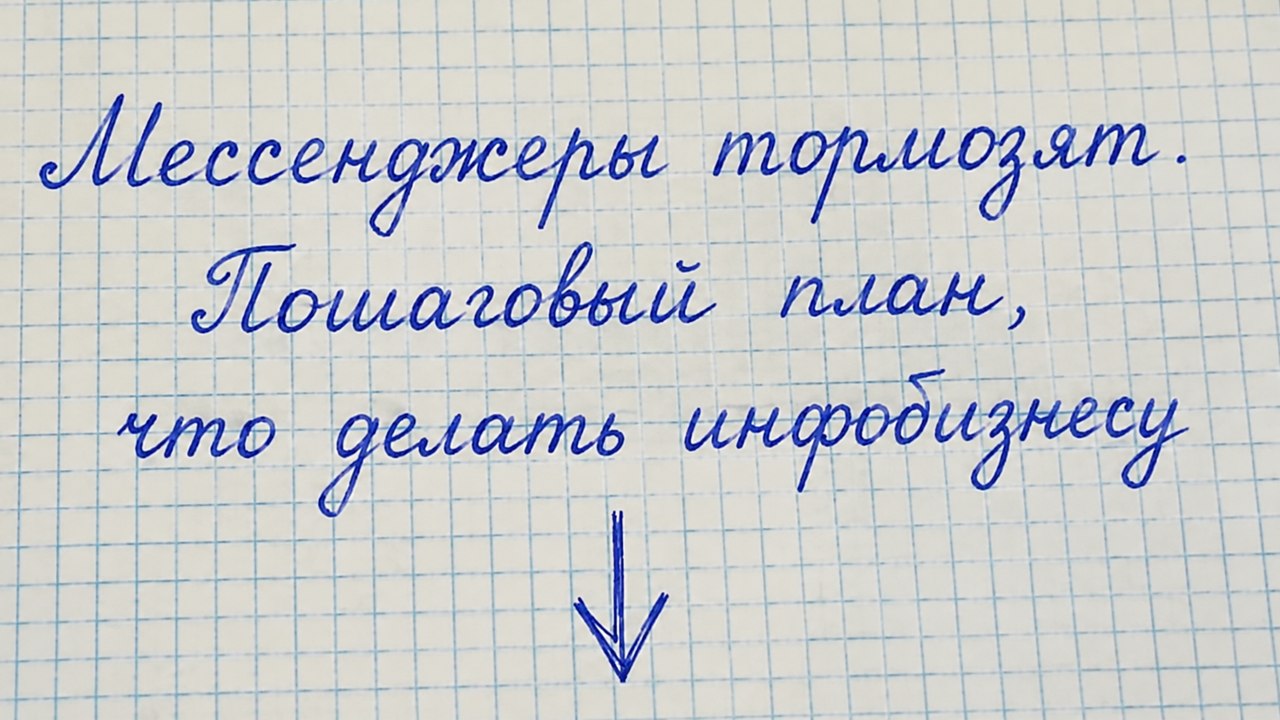 Мессенджеры тормозят.
Пошаговый план,
что делать инфобизнесу